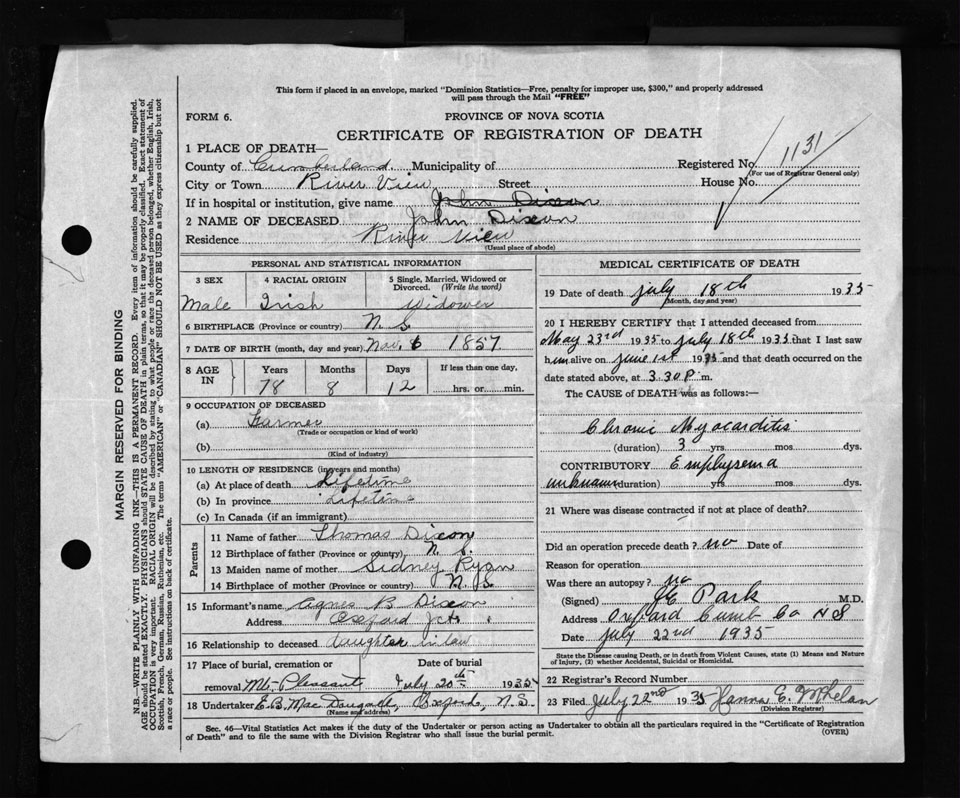 This form if placed in an envelope, marked "Dominion Statistics—Free, penalty for improper use, $300," and properly addressed
will pass through the Mail "FREE"
FORM 6.
PROVINCE OF NOVA SCOTIA
CERTIFICATE OF REGISTRATION OF DEATH
1 PLACE OF DEATH—
County of Cumberland Municipality of Registered No. 1131
(For use of Registrar General only)
City or Town River View Street House No.
If in hospital or institution, give name John Dixon
2 NAME OF DECEASED John Dixon
Residence River View
(Usual place of abode)
PERSONAL AND STATISTICAL INFORMATION
3 SEX 4 RACIAL ORIGIN 5 Single, Married, Widowed or
Divorced. (Write the word)
Male Irish Widower
6 BIRTHPLACE (Province or country) N.S.
7 DATE OF BIRTH (month, day and year) Nov. 6 1857
8 AGE IN Years Months Days If less than one day,
78 8 12 hrs. or min.
9 OCCUPATION OF DECEASED
(a) Farmer
(Trade or occupation or kind of work)
(b)
(Kind of industry)
10 LENGTH OF RESIDENCE (in years and months)
(a) At place of death Lifetime
(b) In province Lifetime
(c) In Canada (if an immigrant)
Parents
11 Name of father Thomas Dixon
12 Birthplace of father (Province or country) N.S.
13 Maiden name of mother Sidney Ryan
14 Birthplace of mother (Province or country) N.S.
15 Informant's name Agnes B Dixon
Address Oxford Jct.
16 Relationship to deceased daughter in law
17 Place of burial, cremation or Date of burial
removal Mt. Pleasant July 20th 1935
18 Undertaker C.B. Mac Dougall, Oxford, N.S.
(Name and address)
MEDICAL CERTIFICATE OF DEATH
19 Date of death July 18th 1935
(Month, day and year)
20 I HEREBY CERTIFY that I attended deceased from
May 23rd 1935 to July 18th 1935 that I last saw
him alive on June 1st 1935 and that death occurred on the
date stated above, at 3.30 P.m.
The CAUSE of DEATH was as follows:—
Chronic Myocarditis
(duration) 3 yrs. mos. dys.
CONTRIBUTORY Emphysema
unknown (duration) yrs. mos. dys.
21 Where was disease contracted if not at place of death?
Did an operation precede death? no Date of
Reason for operation
Was there an autopsy? no
(Signed) J E Park M.D.
Address Oxford Cumb Co N S
Date July 22nd 1935
State the Disease causing Death, or in death from Violent Causes, state (1) Means and Nature
of Injury, (2) whether Accidental, Suicidal or Homicidal.
22 Registrar's Record Number
23 Filed July 22nd 1935 Hanna E. Whelan
(Division Registrar)
Sec. 46—Vital Statistics Act makes it the duty of the Undertaker or person acting as Undertaker to obtain all the particulars required in the "Certificate of Registration
of Death" and to file the same with the Division Registrar who shall issue the burial permit.
(OVER)
MARGIN RESERVED FOR BINDING
N.B.—WRITE PLAINLY WITH UNFADING INK—THIS IS A PERMANENT RECORD. Every item of information should be carefully supplied.
AGE should be stated EXACTLY. PHYSICIANS should STATE CAUSE OF DEATH in plain terms, so that it may be properly classified. Exact statement of
OCCUPATION is very important. RACIAL ORIGIN will be described by stating to what people or race the deceased person belonged, whether English, Irish,
Scottish, French, German, Russian, Ruthenian, etc. The terms "AMERICAN" or "CANADIAN" SHOULD NOT BE USED as they express citizenship but not
a race or people. See instructions on back of certificate.